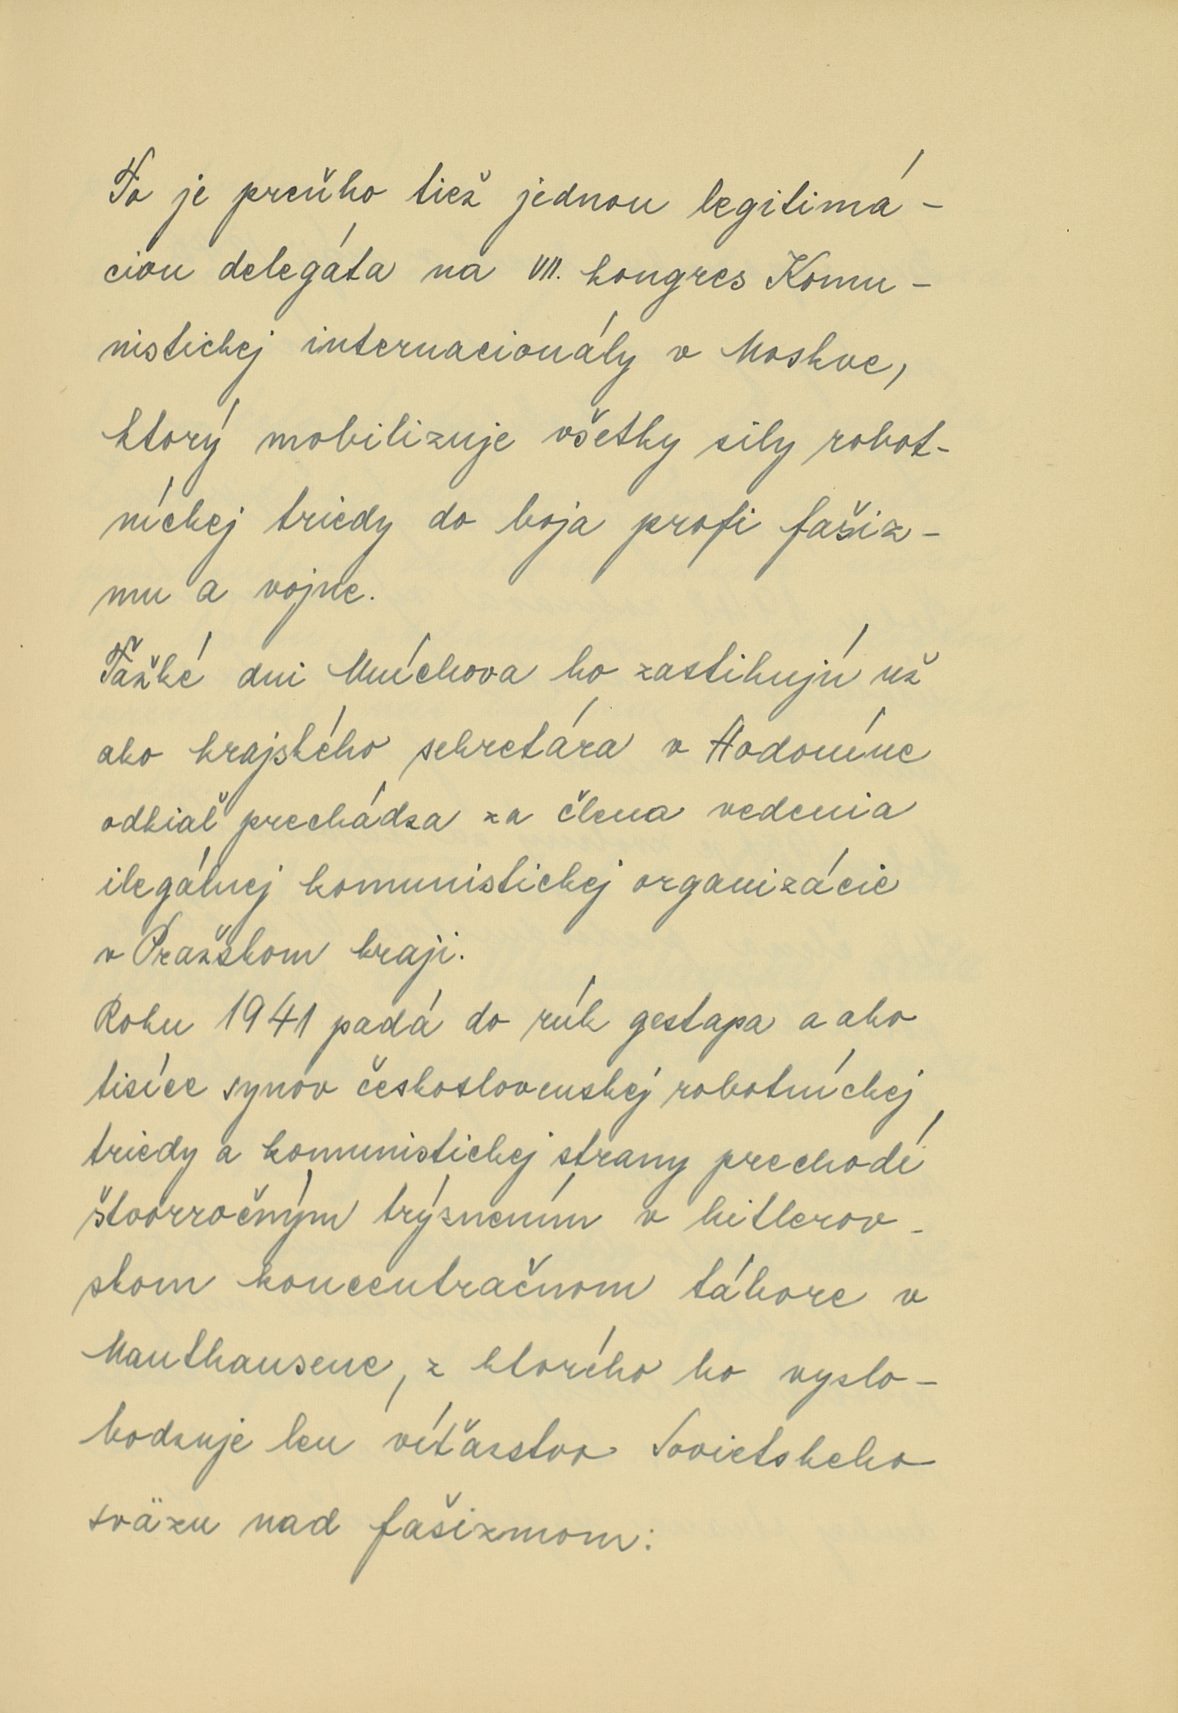 To je preňho tiež jednou legitimá-
ciou delegáta na VII. kongres Komu-
nistickej internacionály v Moskve,
ktorý mobilizuje všetky sily robot-
níckej triedy do boja proti fašiz-
mu a vojne.
Ťažké dni Mníchova ho zastihujú už
ako krajského sekretára v Hodoníne
odkiaľ prechádza za člena vedenia
ilegálnej komunistickej organizácie
v Pražskom kraji.
Roku 1941 padá do rúk gestapa a ako
tisíce synov československej robotníckej
triedy a komunistickej strany prechodí
štvorročným trýznením v hitlerov-
skom koncentračnom tábore v
Mauthausene, z ktorého ho vyslo-
bodzuje len víťazstvo Sovietskeho
sväzu nad fašizmom: